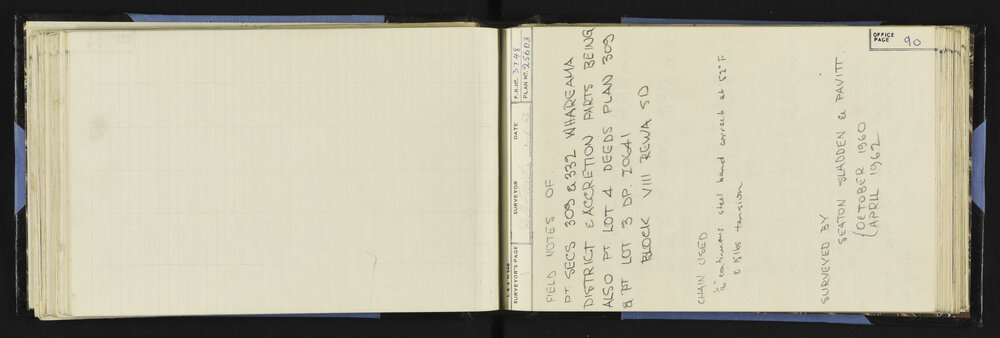 OFFICE PAGE 90
F.B. No. 3748
PLAN No. 25603
DATE
SURVEYOR
SURVEYOR'S PAGE 1
FIELD NOTES OF
PT. SECS 309 & 332 WHAREAMA
DISTRICT & ACCRETION PARTS BEING
ALSO PT LOT 4 DEEDS PLAN 309
& PT LOT 3 DP. 10641
BLOCK VIII REWA SD
CHAIN USED
continuous steel band correct at 52° F
@ 15 lbs tension
SURVEYED BY
SEATON SLADDEN & PAVITT.
{OCTOBER 1960
APRIL 1962